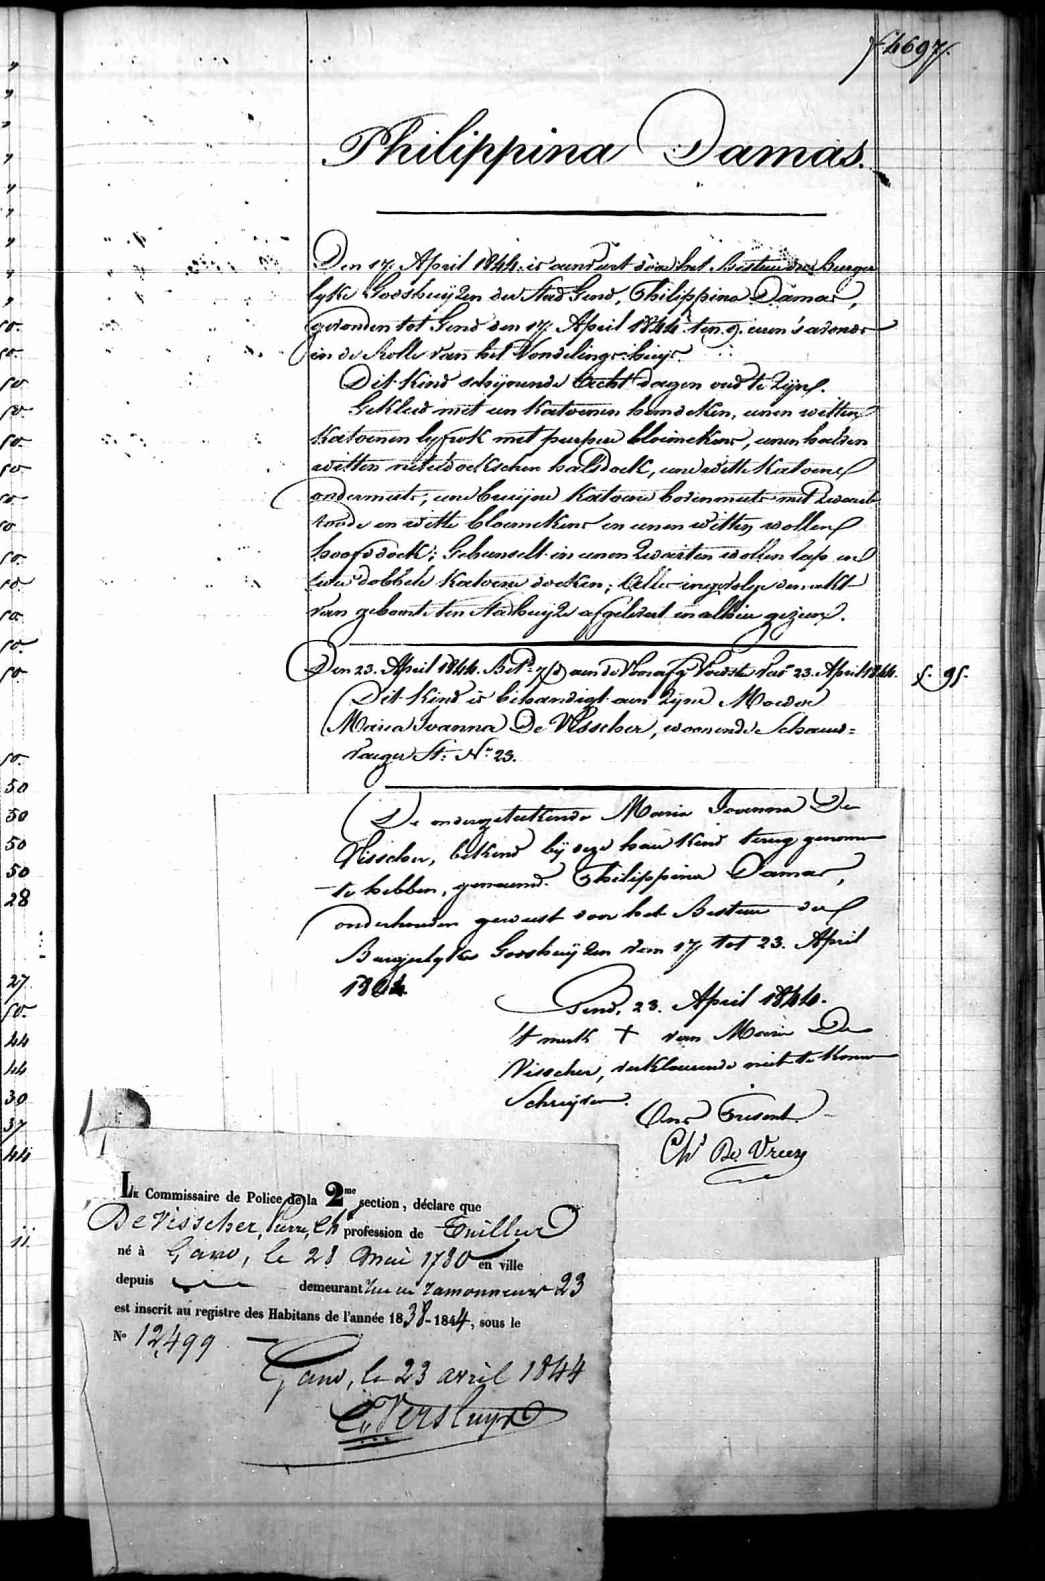 f. 4697.
Philippina Damas.
Den 17. April 1844. is aenveert door het Bestuer der Burger
lyke Godshuyzen der Stad Gend, Philippina Damas,
gevonden tot Gend den 17. April 1844. ten 9. uren 's avonds
in de Rolle van het Vondelingshuys.
Dit Kind schynende acht dagen oud te zyn.
Gekleed met een Katoenen hemdeken, eenen witten
Katoenen lyfrok met purpere bloemekens, eenen
witten neteldoekschen halsdoek, eene witte Katoene
ondermuts, eene bruyne Katoene bovenmuts met zwarte
roode en witte bloemekens en eenen witten wollen
hoofddoek; Gebunselt in eenen zwarten wollen lap en
twee dobbele Katoene doeken; Alles ingevolge den akt
van geboorte ten Stadhuyze afgelevert en alhier gezien.
Den 23. April 1844. Bet. aen de Voedster 23. April 1844. f. 95.
Dit Kind is behandigt aen zyne Moeder
Maria Joanna De Visscher, woonende Schauw=
vaeger St. N.º 23.
De ondergeteekende Maria Joanna De
Visscher, bekend by deze haer Kind terug genomen
te hebben, genaemd Philippina Damas,
onderhouden geweest door het Bestuer der
Burgerlyke Godshuyzen van 17 tot 23. April
1844.
Gend, 23. April 1844.
't merk + van Maria De
Visscher, verklaerende niet te konnen
Schryven.
Ons Present
Ch.s De Vreese
Le Commissaire de Police de la 2me section, déclare que
De Visscher, Pierre, Ch. profession de Tailleur
né à Gand, le 28 Mai 1780 en ville
depuis demeurant rue des ramonneurs 23
est inscrit au registre des Habitans de l'année 1838-1844, sous le
N° 12,499
Gand, le 23 avril 1844
C. Versluys